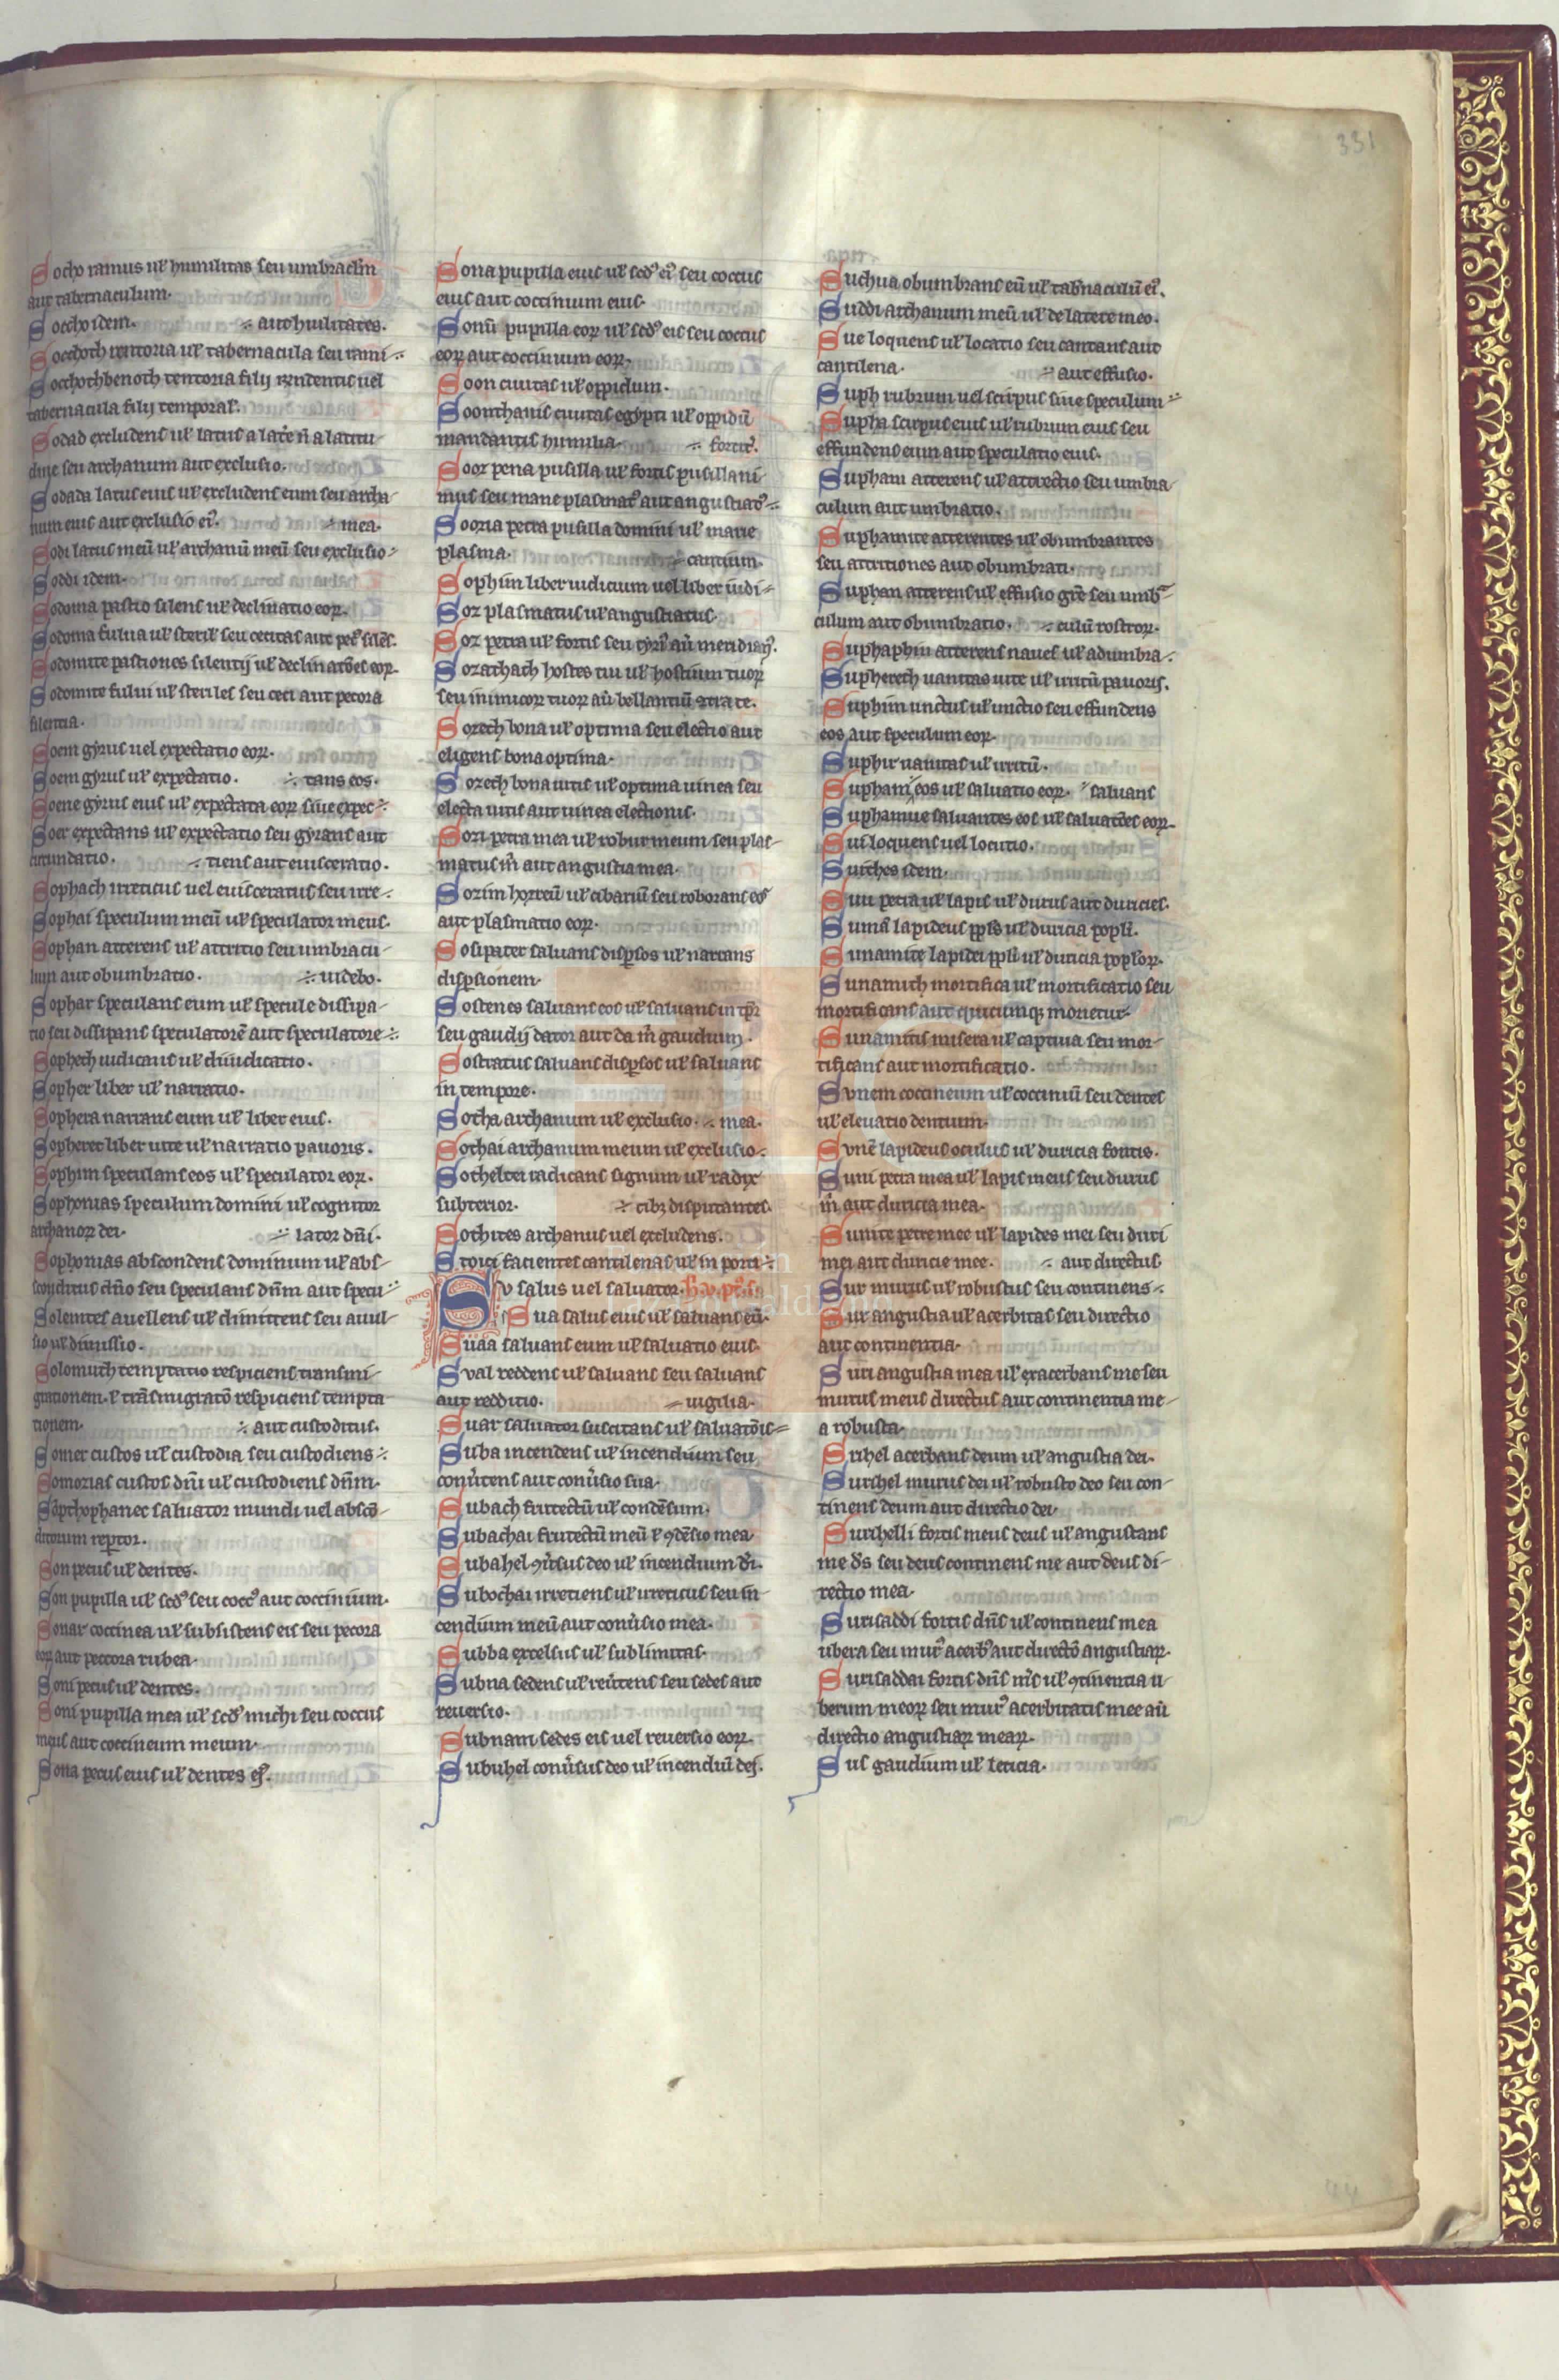 331
Socho ramus ul̓ humilitas seu umbraclm̄
aut tabernaculum.
Soccho idem. ⁒ aut huilitates.
Socchoth tentoria ul̓ tabernacula seu rami ⁒
Socchothbenoth tentoria filij tendentis uel
tabernacula filij temporal̓.
Sodad excludens ul̓ latus a lat̓e n̄ a latitu-
dine seu archanum aut exclusio.
Sodada latus eius ul̓ excludens eum seu archa-
num eius aut exclusio ei⁹. ⁒ mea.
Sodi latus meū ul̓ archanū meū seu exclusio ⁒
Soddi idem.
Sodoma pastio silens ul̓ declinatio eoꝝ.
Sodoma fulua ul̓ steril̓ seu cecitas aut pec⁹ silēs.
Sodomite pastiones silentij ul̓ declinatōes eoꝝ.
Sodomite fului ul̓ steriles seu ceci aut pecora
silentia.
Soem gyrus uel expectatio eoꝝ.
Soem gyrus ul̓ expectatio. ⁒ tans eos.
Soene gyrus eius ul̓ expectata eoꝝ siue expec ⁒
Soer expectans ul̓ expectatio seu gyrans aut
circundatio. ⁒ tiens aut euisceratio.
Sophach irreticus uel euisceratus seu irre ⁒
Sophai speculum meū ul̓ speculator meus.
Sophan atterens ul̓ attritio seu umbracu-
lum aut obumbratio. ⁒ uidebo.
Sophar speculans eum ul̓ specule dissipa-
tio seu dissipans speculatorē aut speculatore ⁒
Sophech iudicans ul̓ diiudicatio.
Sopher liber ul̓ narratio.
Sophera narrans eum ul̓ liber eius.
Sopheret liber uite ul̓ narratio pauoris.
Sophim speculans eos ul̓ speculator eoꝝ.
Sophonias speculum domini ul̓ cognitor
archanoꝝ dei. ⁒ lator dn̄i.
Sophonias abscondens dominum ul̓ abs-
conditus dn̄o seu speculans dn̄m aut specu ⁒
Solemtes auellens ul̓ dimittens seu auul-
sio ul̓ dimissio.
Solomuth temptatio respiciens transmi-
grationem. ł trāsmigratō respiciens tempta
tionem. ⁒ aut custoditus.
Somer custos ul̓ custodia seu custodiens ⁒
Somorias custos dn̄i ul̓ custodiens dn̄m.
Sōpthophanec saluator mundi uel abscō-
ditorum rep̄tor.
Son pecus ul̓ dentes.
Son pupilla ul̓ scd̓s seu cocc⁹ aut coccinium.
Sonar coccinea ul̓ subsistens eis seu pecora
eoꝝ aut peccora rubea.
Soni pecus ul̓ dentes.
Soni pupilla mea ul̓ scd̓s michi seu coccus
meus aut coccineum meum.
Sona pecus eius ul̓ dentes ei⁹.
Sona pupilla eius ul̓ scd̓s ei⁹ seu coccus
eius aut coccinium eius.
Sonū pupilla eoꝝ ul̓ scd̓s eis seu coccus
eoꝝ aut coccinium eoꝝ.
Soon ciuitas ul̓ oppidum.
Soonthanis ciuitas egypti ul̓ oppidū
mandantis humilia. ⁒ fortit̓.
Soor pena pusilla ul̓ fortis pusillani
mus seu mane plasmat⁹ aut angustiat⁹ ⁒
Sooria petra pusilla domini ul̓ mane
plasma. ⁒ cantium.
Sophim liber iudicium uel liber iudi ⁒
Sor plasmatus ul̓ angustiatus.
Sor petra ul̓ fortis seu tyr⁹ aū meridian⁹.
Sorathach hostes tui ul̓ hostium tuoꝝ
seu inimicoꝝ tuoꝝ aū bellantiū ꝯtra te.
Sorech bona ul̓ optima seu electio aut
eligens bona optima.
Sorech bona uitis ul̓ optima uinea seu
electa uitis aut uinea electionis.
Sori petra mea ul̓ robur meum seu plas-
matus m̓ aut angustia mea.
Sorim horreū ul̓ cibariū seu roborans eos
aut plasmatio eoꝝ.
Sosipater saluans disp̄sos ul̓ narrans
disp̄sionem.
Sostenes saluans eos ul̓ saluans in tp̄r
seu gaudij dator aut da m̓ gaudium.
Sostratus saluans disp̄sos ul̓ saluans
in tempore.
Sotha archanum ul̓ exclusio. ⁒ mea.
Sothai archanum meum ul̓ exclusio ⁒
Sotheltei radicans signum ul̓ radix
subterior. ⁒ cibꝫ disputantes.
Sothites archanus uel excludens.
Stoici facientes cantilenas ul̓ in porti ⁒
SV salus uel saluator.
Sua salus eius ul̓ saluans eū.
Suaa saluans eum ul̓ saluatio eius.
Sval reddens ul̓ saluans seu saluans
aut redditio. ⁒ uigilia.
Suar saluator suscitans ul̓ saluatōis ⁒
Suba incendens ul̓ incendium seu
conu̓tens aut conu̓sio sua.
Subach frutectū ul̓ condēsum.
Subachai frutectū meū ł ꝯdēsio mea.
Subahel ꝯu̓sus deo ul̓ incendium d̓i.
Subochai irretiens ul̓ irreticus seu in-
cendium meū aut conu̓sio mea.
Subba excelsus ul̓ sublimitas.
Subna sedens ul̓ reu̓tens seu sedes aut
reuersio.
Subnam sedes eis uel reuersio eoꝝ.
Subuhel conu̓sus deo ul̓ incendiū dei.
Suchua obumbrans eū ul̓ tab̓naculū ei⁹.
Suddi archanum meū ul̓ de latere meo.
Sue loquens ul̓ locatio seu cantans aut
cantilena. ⁒ aut effusio.
Suph rubrum uel scirpus siue speculum ⁒
Supha scirpus eius ul̓ rubrum eius seu
effundens eum aut speculatio eius.
Supham atterens ul̓ attrectio seu umbra
culum aut umbratio.
Suphamite atterentes ul̓ obumbrantes
seu attritiones aut obumbrati.
Suphan atterens ul̓ effusio gr̄e seu umbᵃ-
culum aut obumbratio. ⁒ culū rostroꝝ.
Suphaphin atterens naues ul̓ adumbra ⁒
Supherech uanitas uite ul̓ irritū pauoris.
Suphim unctus ul̓ unctio seu effundens
eos aut speculum eoꝝ.
Suphir uanitas ul̓ irritū.
Supham eos ul̓ saluatio eoꝝ. ⁒ saluans
Suphamue saluantes eos ul̓ saluatōes eoꝝ.
Sui loquens uel locutio.
Suithes idem.
Sun petra ul̓ lapis ul̓ durus aut duricies.
Sumā lapideus ppl̓s ul̓ duricia popl̓i.
Sunamite lapidei ppl̓i ul̓ duricia popl̓oꝝ.
Sunamith mortifica ul̓ mortificatio seu
mortificans aut quicumqꝫ monetur.
Sunamitis misera ul̓ captiua seu mor-
tificans aut mortificatio.
Svnem coccineum ul̓ cocciniū seu dentes
ul̓ eleuatio dentium.
Svnē lapideus oculus ul̓ duricia fontis.
Suni petra mea ul̓ lapis meus seu durus
m̓ aut duricia mea.
Sunite petre mee ul̓ lapides mei seu duri
mei aut duricie mee. ⁒ aut directus.
Sur murus ul̓ robustus seu continens ⁒
Sur angustia ul̓ acerbitas seu directio
aut continentia.
Suri angustia mea ul̓ exacerbans me seu
murus meus directus aut continentia me-
a robusta.
Srihel acerbans deum ul̓ angustia dei.
Surihel murus dei ul̓ robusto deo seu con-
tinens deum aut directio dei.
Surihelli fortis meus deus ul̓ angustans
me d̓s seu deus continens me aut deus di-
rectio mea.
Surisaddi fortis dn̄s ul̓ continens mea
ubera seu mur⁹ acerb⁹ aut directō angustiaꝝ.
Surisaddai fortis dn̄s m̓s ul̓ ꝯtinentia u-
berum meoꝝ seu mur⁹ acerbitatis mee aū
directio angustiaꝝ meaꝝ.
Sus gaudium ul̓ leticia.